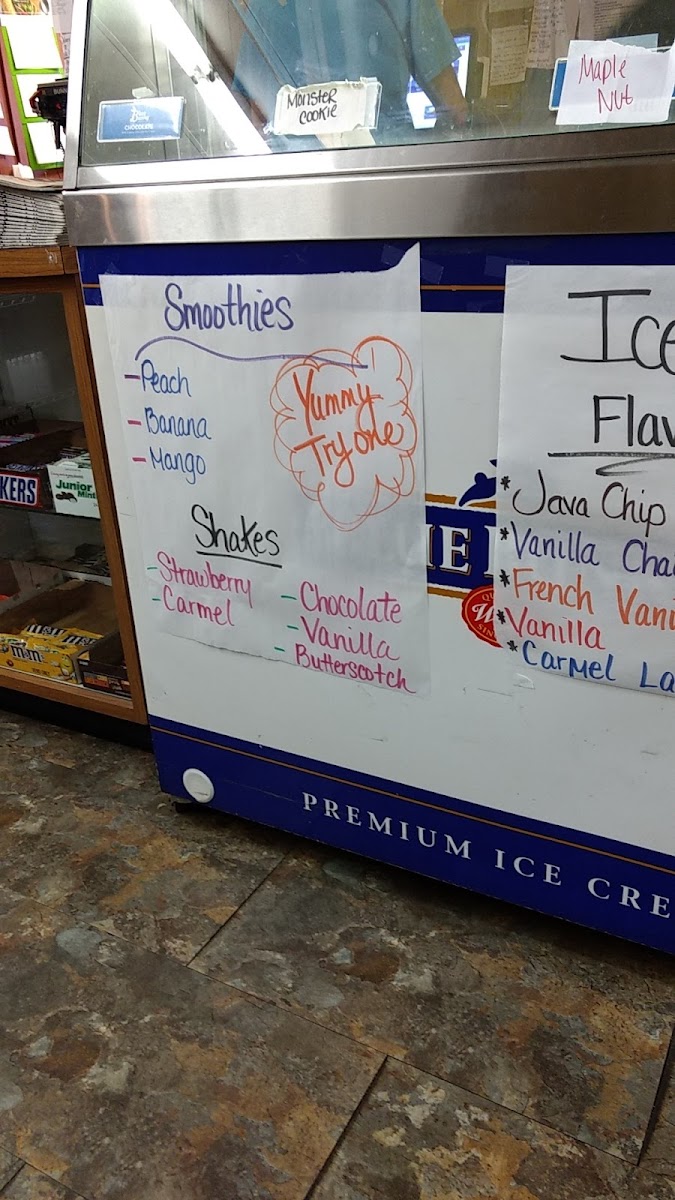 CHOCOLATE
Monster
cookie
Maple
Nut
Smoothies
- Peach
- Banana
- Mango
Yummy
Try one
Shakes
- Strawberry
- Carmel
- Chocolate
- Vanilla
- Butterscotch
Ice
Flav
* Java Chip
* Vanilla Cha
* French Vani
* Vanilla
* Carmel La
KERS
Junior
Mint
m&m's
PREMIUM ICE CRE